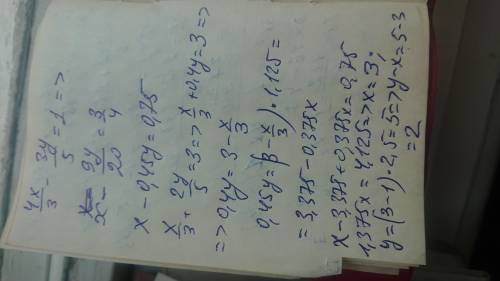 4x/3 - 3y/5 = 1 =>
x - 9y/20 = 3/4
x - 0,45y = 0,75
x/3 + 2y/5 = 3 => x/3 + 0,4y = 3 =>
=> 0,4y = 3 - x/3
0,45y = (3 - x/3) · 1,125 =
= 3,375 - 0,375x
x - 3,375 + 0,375x = 0,75
1,375x = 4,125 => x = 3;
y = (3-1) · 2,5 = 5 => y - x = 5 - 3
= 2